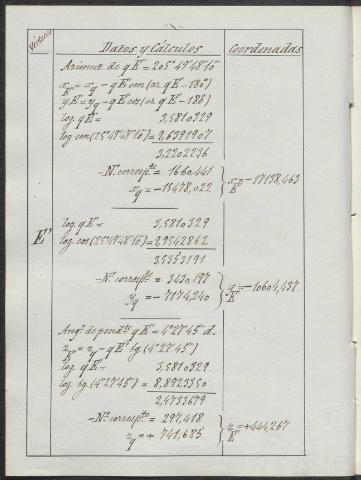 Vértices
Datos y Cálculos
Coordenadas
Azimut de qE' = 205° 49' 48"10
x = xq - qE' sen (az qE' - 180°)
E'
yE' = yq - qE' cos (az qE' - 180°)
log. qE' = 3,5810329
log sen (25° 49' 48"10) = 2,6391907
3,2202236
- N.º corresp.te = 1660,441
xq = - 15478,022
x = - 17138,463
E'
E'
log. qE' = 3,5810329
log. cos (25° 49' 48"10) = 2,9542862
3,5353191
- N.º corresp.te = 3430,197
yq = - 7174,240
y = - 10604,437
E'
Ang.º de pend.te qE' = 4° 27' 45" d.
z = zq - qE' tg. (4° 27' 45")
E'
log. qE' = 3,5810329
log. tg. (4° 27' 45") = 8,8923350
2,4733679
- N.º corresp.te = 297,418
zq = + 741,685
z = + 444,267
E'